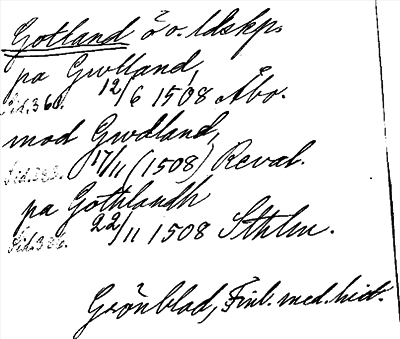 Gotland ö o. ldskp.
pa Gwlland,
Sid. 360. 12/6 1508 Åbo.
mod Gwdland,
Sid. 383. 17/11 (1508) Reval.
pa Gothlandh
Sid. 386. 22/11 1508 Sthlm.
Grönblad, Finl. med. hist.